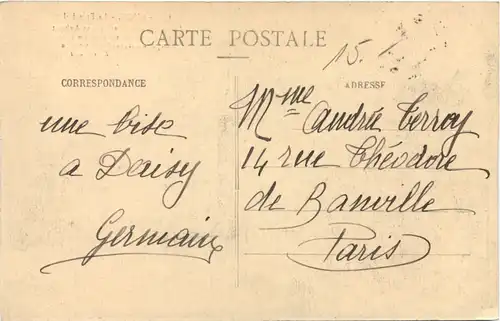 CARTE POSTALE
15.
CORRESPONDANCE
ADRESSE
une bise
a Daisy
Germain
Mme Andrée Terroy
14 rue Théodore
de Banville
Paris